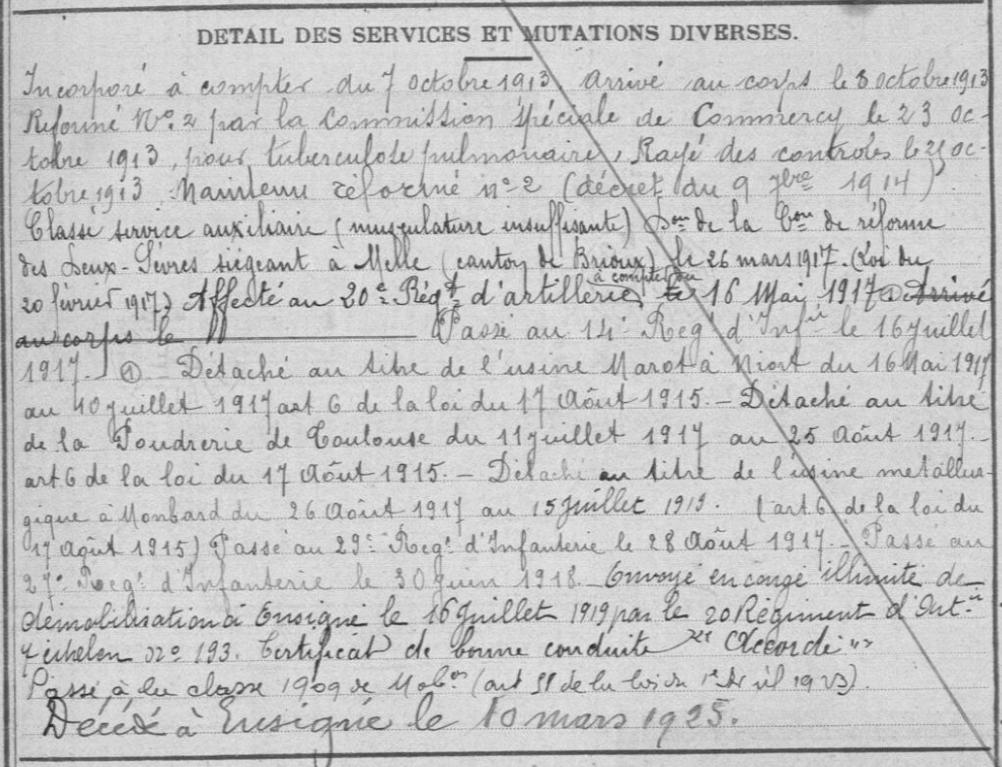 DETAIL DES SERVICES ET MUTATIONS DIVERSES.
Incorporé à compter du 7 octobre 1913, arrivé au corps le 8 octobre 1913
Réformé N°. 2 par la Commission spéciale de Commercy le 23 oc-
tobre 1913, pour tuberculose pulmonaire, Rayé des controles le 23 oc-
tobre 1913. Maintenu réformé n° 2 (décret du 9 7bre 1914).
Classé service auxiliaire (musculature insuffisante) Don de la Con de réforme
des Deux-Sèvres siégeant à Melle (canton de Brioux) le 26 mars 1917. (Loi du
à compter du
20 février 1917) Affecté au 20e Régt d'artillerie le 16 Mai 1917 ① Arrivé
au corps le Passé au 14e Regt d'Infie le 16 Juillet
1917. ① Détaché au titre de l'usine Marot à Niort du 16 Mai 1917
au 10 juillet 1917 art 6 de la loi du 17 Aôut 1915. – Détaché au titre
de la Poudrerie de Toulouse du 11 juillet 1917 au 25 Aôut 1917. –
art. 6 de la loi du 17 Aôut 1915. – Détaché au titre de l'usine metallur-
gique à Monbard du 26 Aôut 1917 au 15 Juillet 1919. (art. 6 de la loi du
17 Aôut 1915) Passé au 29e Regt d'Infanterie le 28 Aôut 1917. – Passé au
27e Regt d'Infanterie le 30 Juin 1918. – Envoyé en congé illimité de
démobilisation à Ensigné le 16 Juillet 1919 par le 20 Régiment d'Artie
7 échelon N° 193. Certificat de bonne conduite "Accordé"
Passé à la classe 1909 de Mobon (art 58 de la loi du 1er Avril 1923).
Décédé à Ensigné le 10 mars 1925.